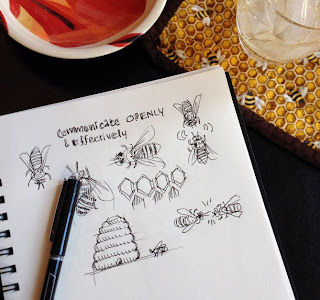 Communicate OPENLY
& Effectively